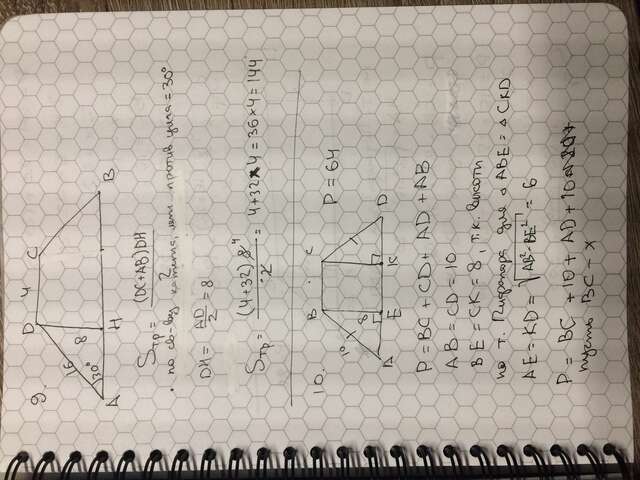 9.
D 4 C
16
8
30°
A H B
Sтр = (DC+AB)DH / 2
• по св-ву катета, леж. против угла = 30°
DH = AD/2 = 8
Sтр = (4+32) 8 4 / 2 = 4+32 × 4 = 36×4 = 144
10.
B C
10
8
P = 64
A E K D
P = BC + CD + AD + AB
AB = CD = 10
BE = CK = 8, т.к. высоты
по т. Пифагора для △ ABE = △ CKD
AE = KD = √AB²-BE² = 6
P = BC + 10 + AD + 10
пусть BC - x